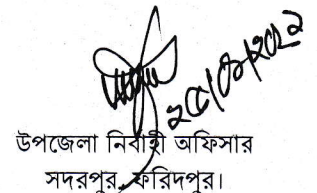 ২৫/০৯/২০২২
উপজেলা নির্বাহী অফিসার
সদরপুর, ফরিদপুর।